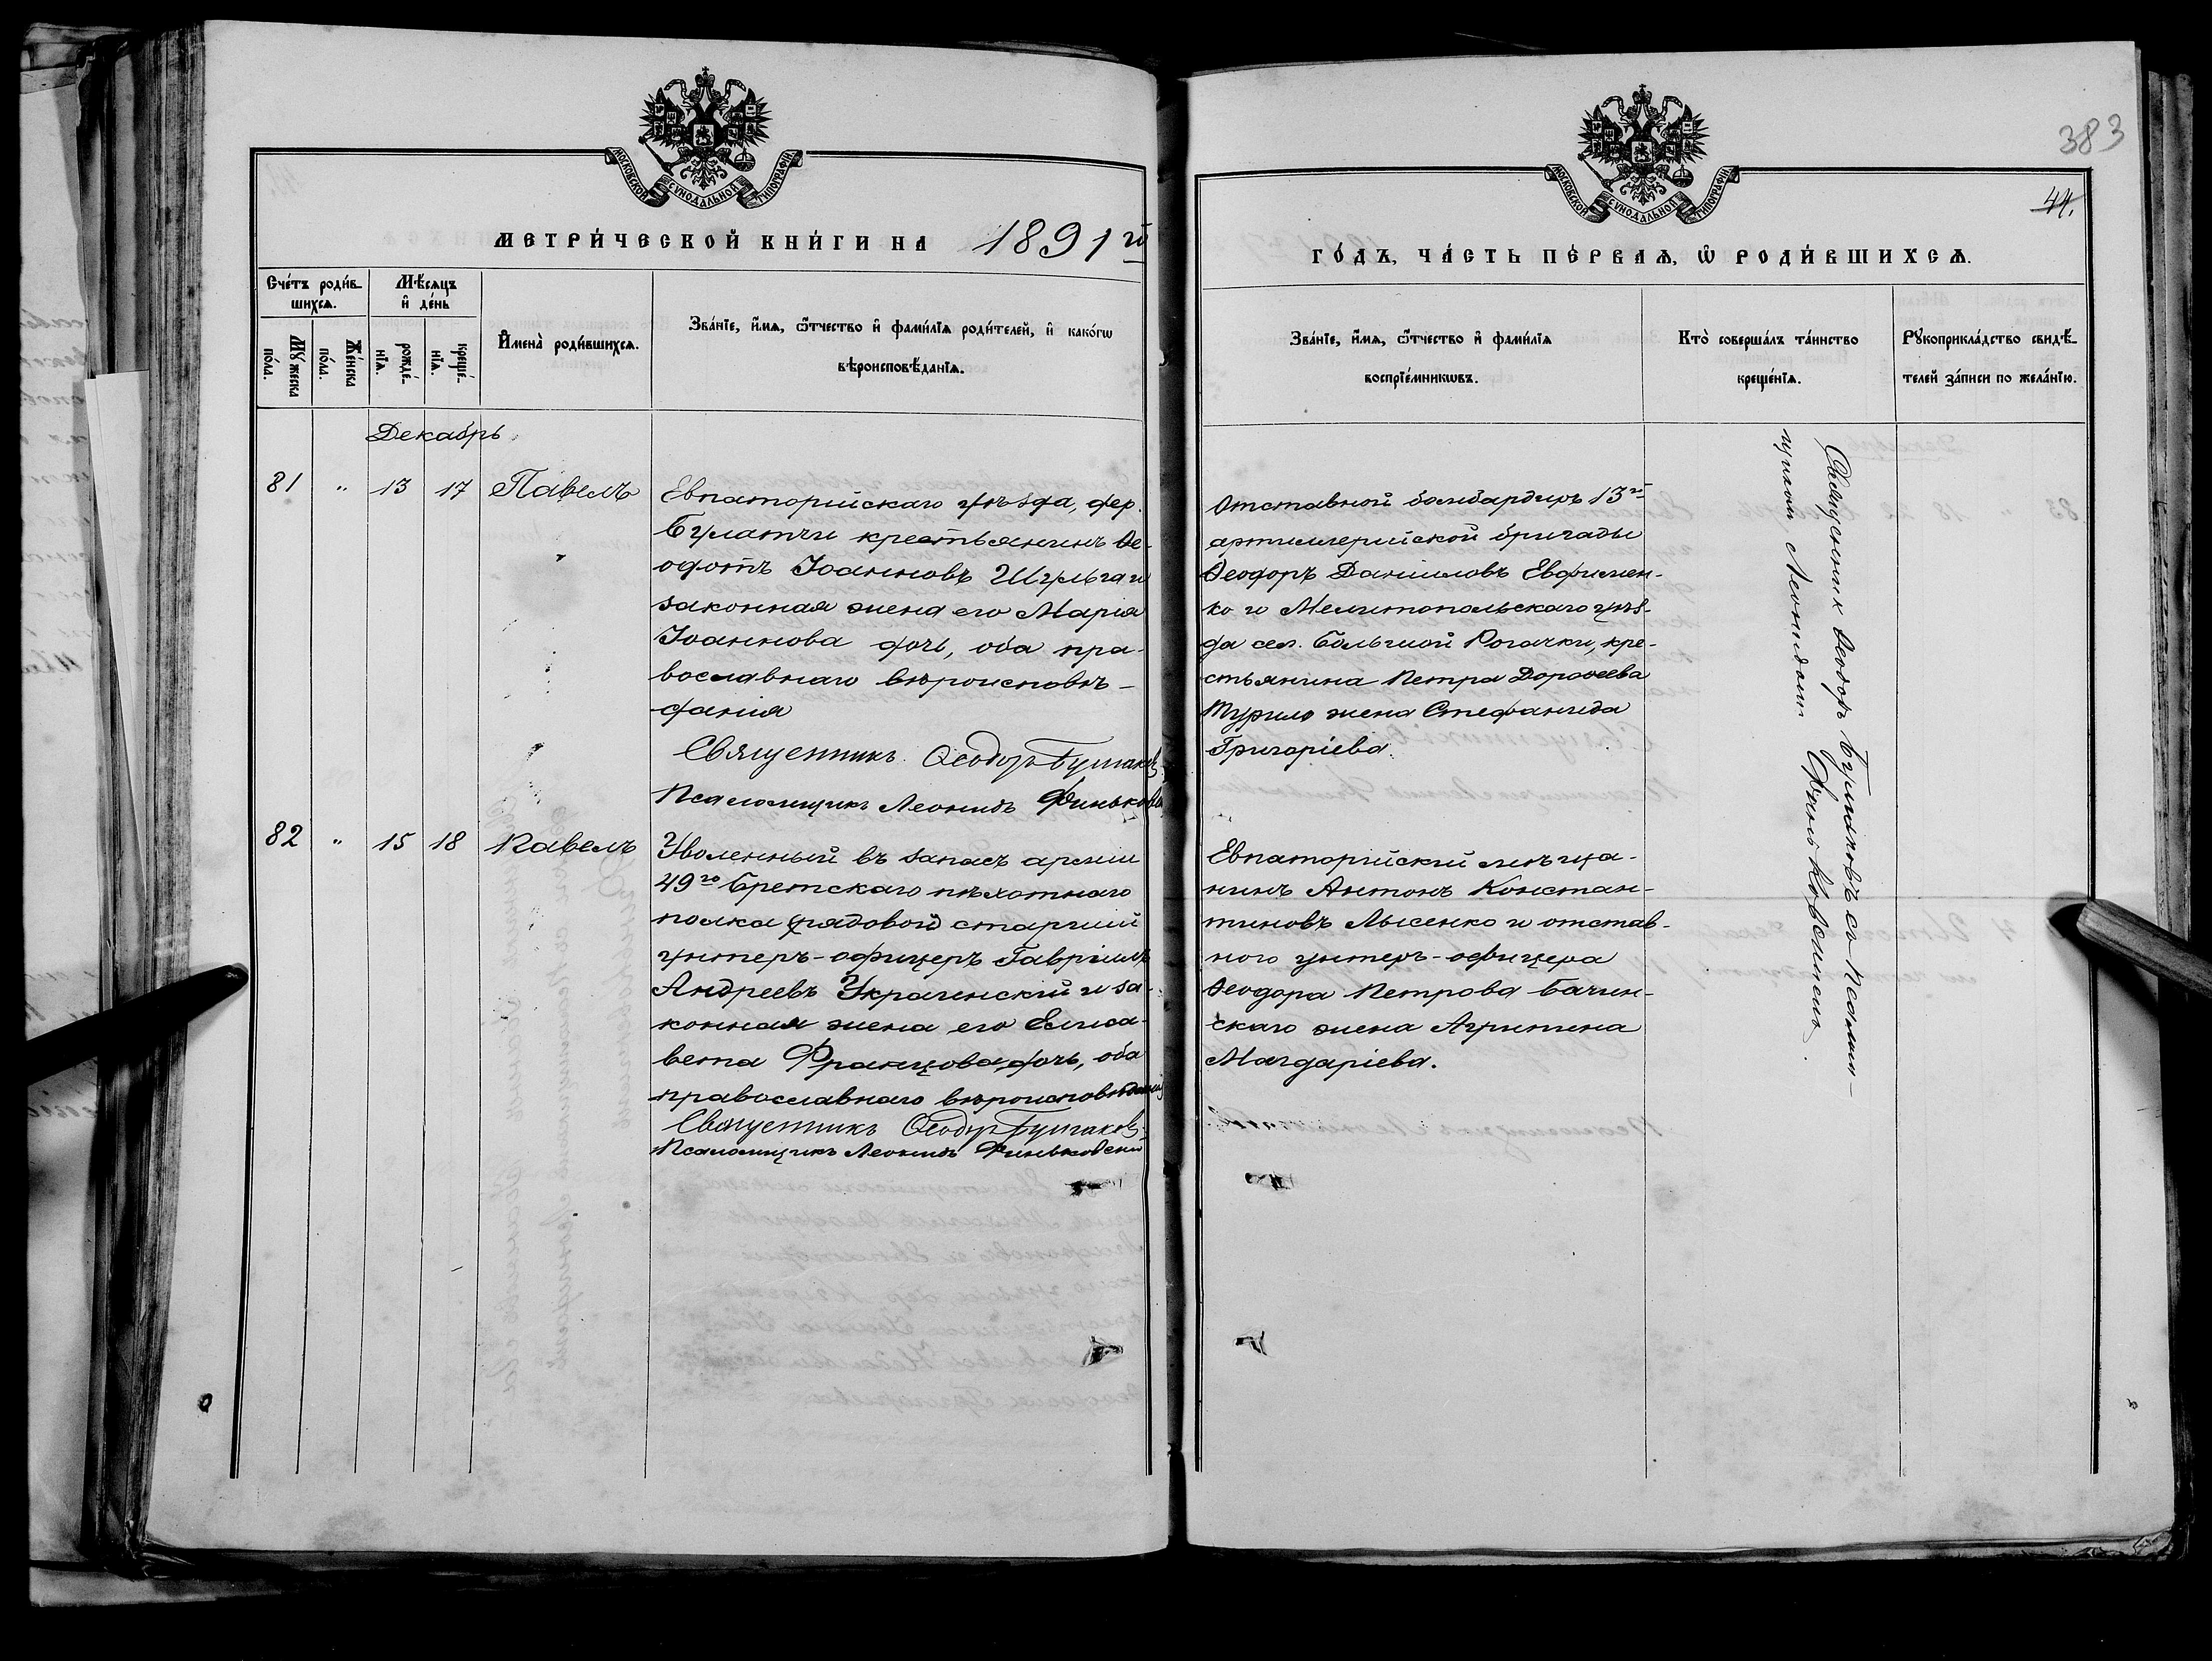 МОСКОВСКОЙ СУНОДАЛЬНОЙ ТИПОГРАФІИ
МЕТРИ́ЧЕСКОЙ КНИ́ГИ НА 1891 й
Сче́тъ роди́в-
шихсѧ.
Мѣ́сѧцъ
и҆ де́нь
Мꙋжеска
по́ла.
Же́нска
по́ла.
рожде́-
нїѧ.
креще́-
нїѧ.
И҆мена̀ роди́вшихсѧ.
Зва́нїе, и҆́мѧ, ѻ҆́тчество и҆ фами́лїѧ роди́телей, и҆ како́гѡ
вѣроисповѣ́данїѧ.
Декабрь
81 " 13 17 Павелъ
Евпаторійскаго уѣзда, дер.
Булатчи крестьянинъ Ѳе-
одотъ Іоанновъ Шульга и
законная жена его Марія
Іоаннова дочь, оба пра-
вославнаго вѣроисповѣ-
данія
Священникъ Ѳеодоръ Булгаковъ
Псаломщикъ Леонидъ
82 " 15 18 Павелъ
Уволенный въ запасъ арміи
49го Брестскаго пѣхотнаго
полка (рядовой) старшій
унтеръ-офицеръ Гавріилъ
Андреевъ Украинскій и за-
конная жена его Елиса-
вета Францова дочь, оба
православнаго вѣроисповѣданія
Священникъ Ѳеодоръ Булгаковъ
Псаломщикъ Леонидъ Финьковскій
383
МОСКОВСКОЙ СУНОДАЛЬНОЙ ТИПОГРАФІИ
44.
ГО́ДЪ, ЧА́СТЬ ПЕ́РВАѦ, Ѡ҆ РОДИ́ВШИХСѦ.
Зва́нїе, и҆́мѧ, ѻ҆́тчество и҆ фами́лїѧ
воспрїе́мникѡвъ.
Кто̀ соверша́лъ та́инство
креще́нїѧ.
Рꙋкоприкла́дство свидѣ́-
телей за́писи по жела́нїю.
Отставной бомбардиръ 13й
артиллерійской бригады
Ѳеодоръ Даніиловъ Евфимен-
ко и Мелитопольскаго уѣз-
да сел. Большой Рогачки, кре-
стьянина Петра Дороѳеева
Турило жена Стефанида
Григоріева.
Евпаторійскій мѣща-
нинъ Антонъ Констан-
тиновъ Лысенко и отстав-
ного унтеръ-офицера
Ѳеодора Петрова Бачин-
скаго жена Агрипина
Магдаріева.
Священникъ Ѳеодоръ Булгаковъ съ псалом-
щикомъ Леонидомъ Финьковскимъ.